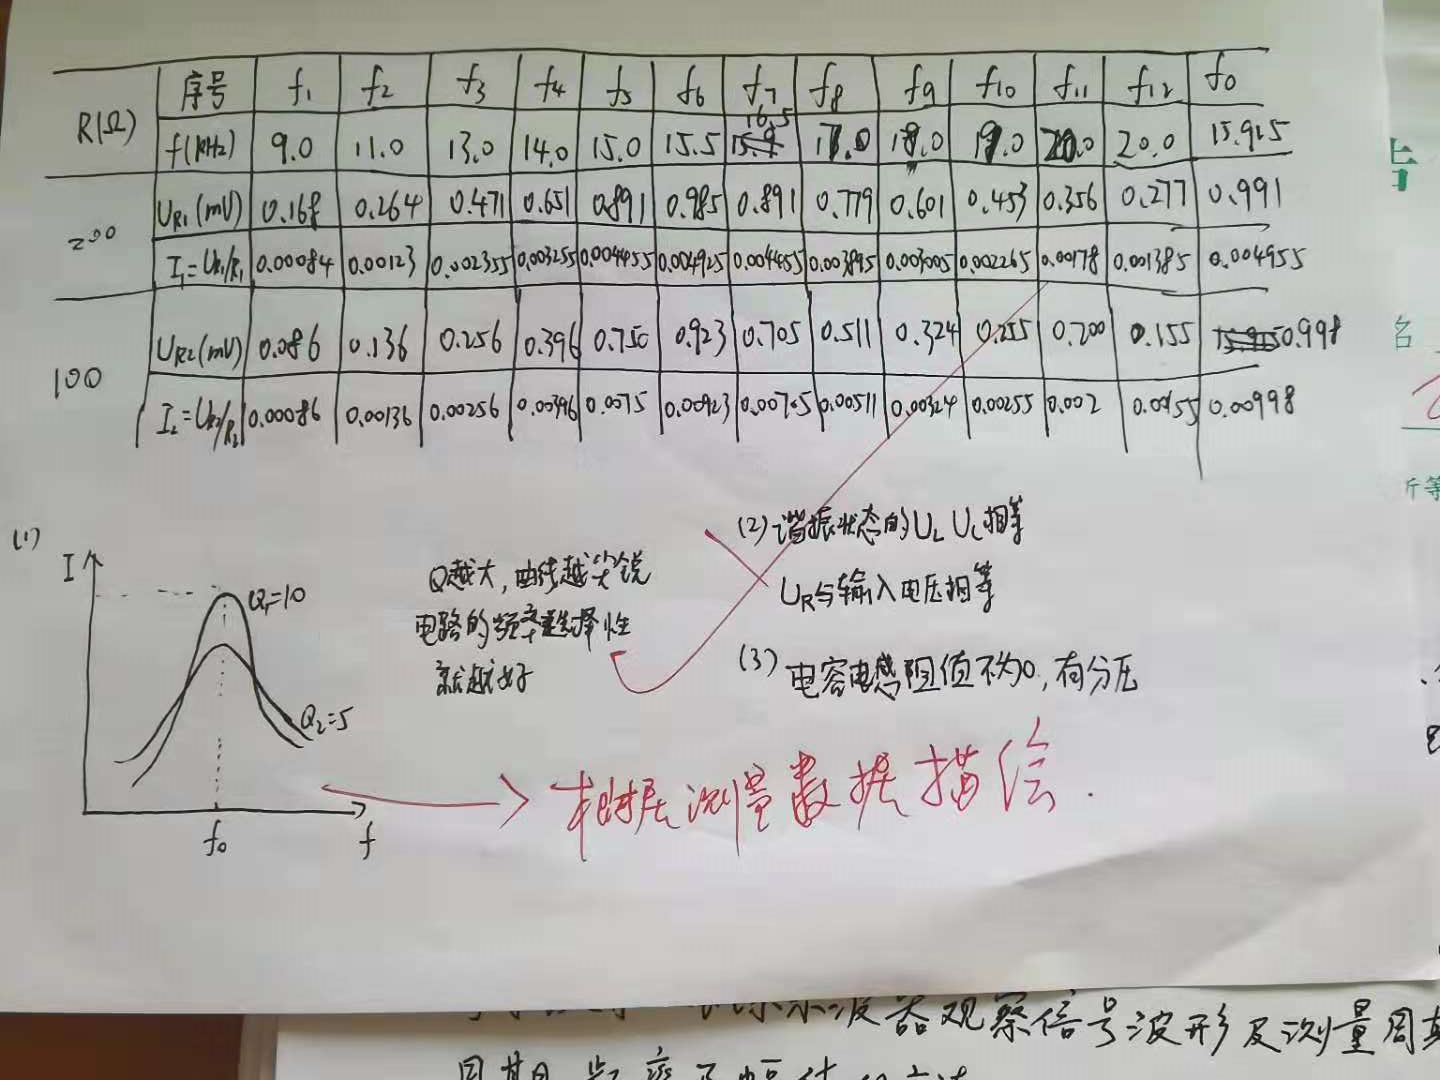 R(Ω) 序号 f₁ f₂ f₃ f₄ f₅ f₆ f₇ f₈ f₉ f₁₀ f₁₁ f₁₂ f₀
f(kHz) 9.0 11.0 13.0 14.0 15.0 15.5 16.5 17.0 18.0 19.0 20.0 20.0 15.915
200 U_R1(mV) 0.168 0.264 0.471 0.651 0.891 0.985 0.891 0.779 0.601 0.453 0.356 0.277 0.991
I₁=U_R1/R₁ 0.00084 0.00123 0.002355 0.003255 0.004455 0.004925 0.004455 0.003895 0.003005 0.002265 0.00178 0.001385 0.004955
100 U_R2(mV) 0.086 0.136 0.256 0.396 0.750 0.923 0.705 0.511 0.324 0.255 0.200 0.155 0.998
I₂=U_R2/R₂ 0.00086 0.00136 0.00256 0.00396 0.0075 0.00923 0.00705 0.00511 0.00324 0.00255 0.002 0.00998
(1)
I
Q₁=10
Q₂=5
f₀
f
Q越大,曲线越尖锐
电路的频率选择性
就越好
(2)谐振状态的U_L U_C相等
U_R与输入电压相等
(3)电容电感阻值不为0,有分压
根据测量数据描绘.
示波器观察信号波形及测量周期